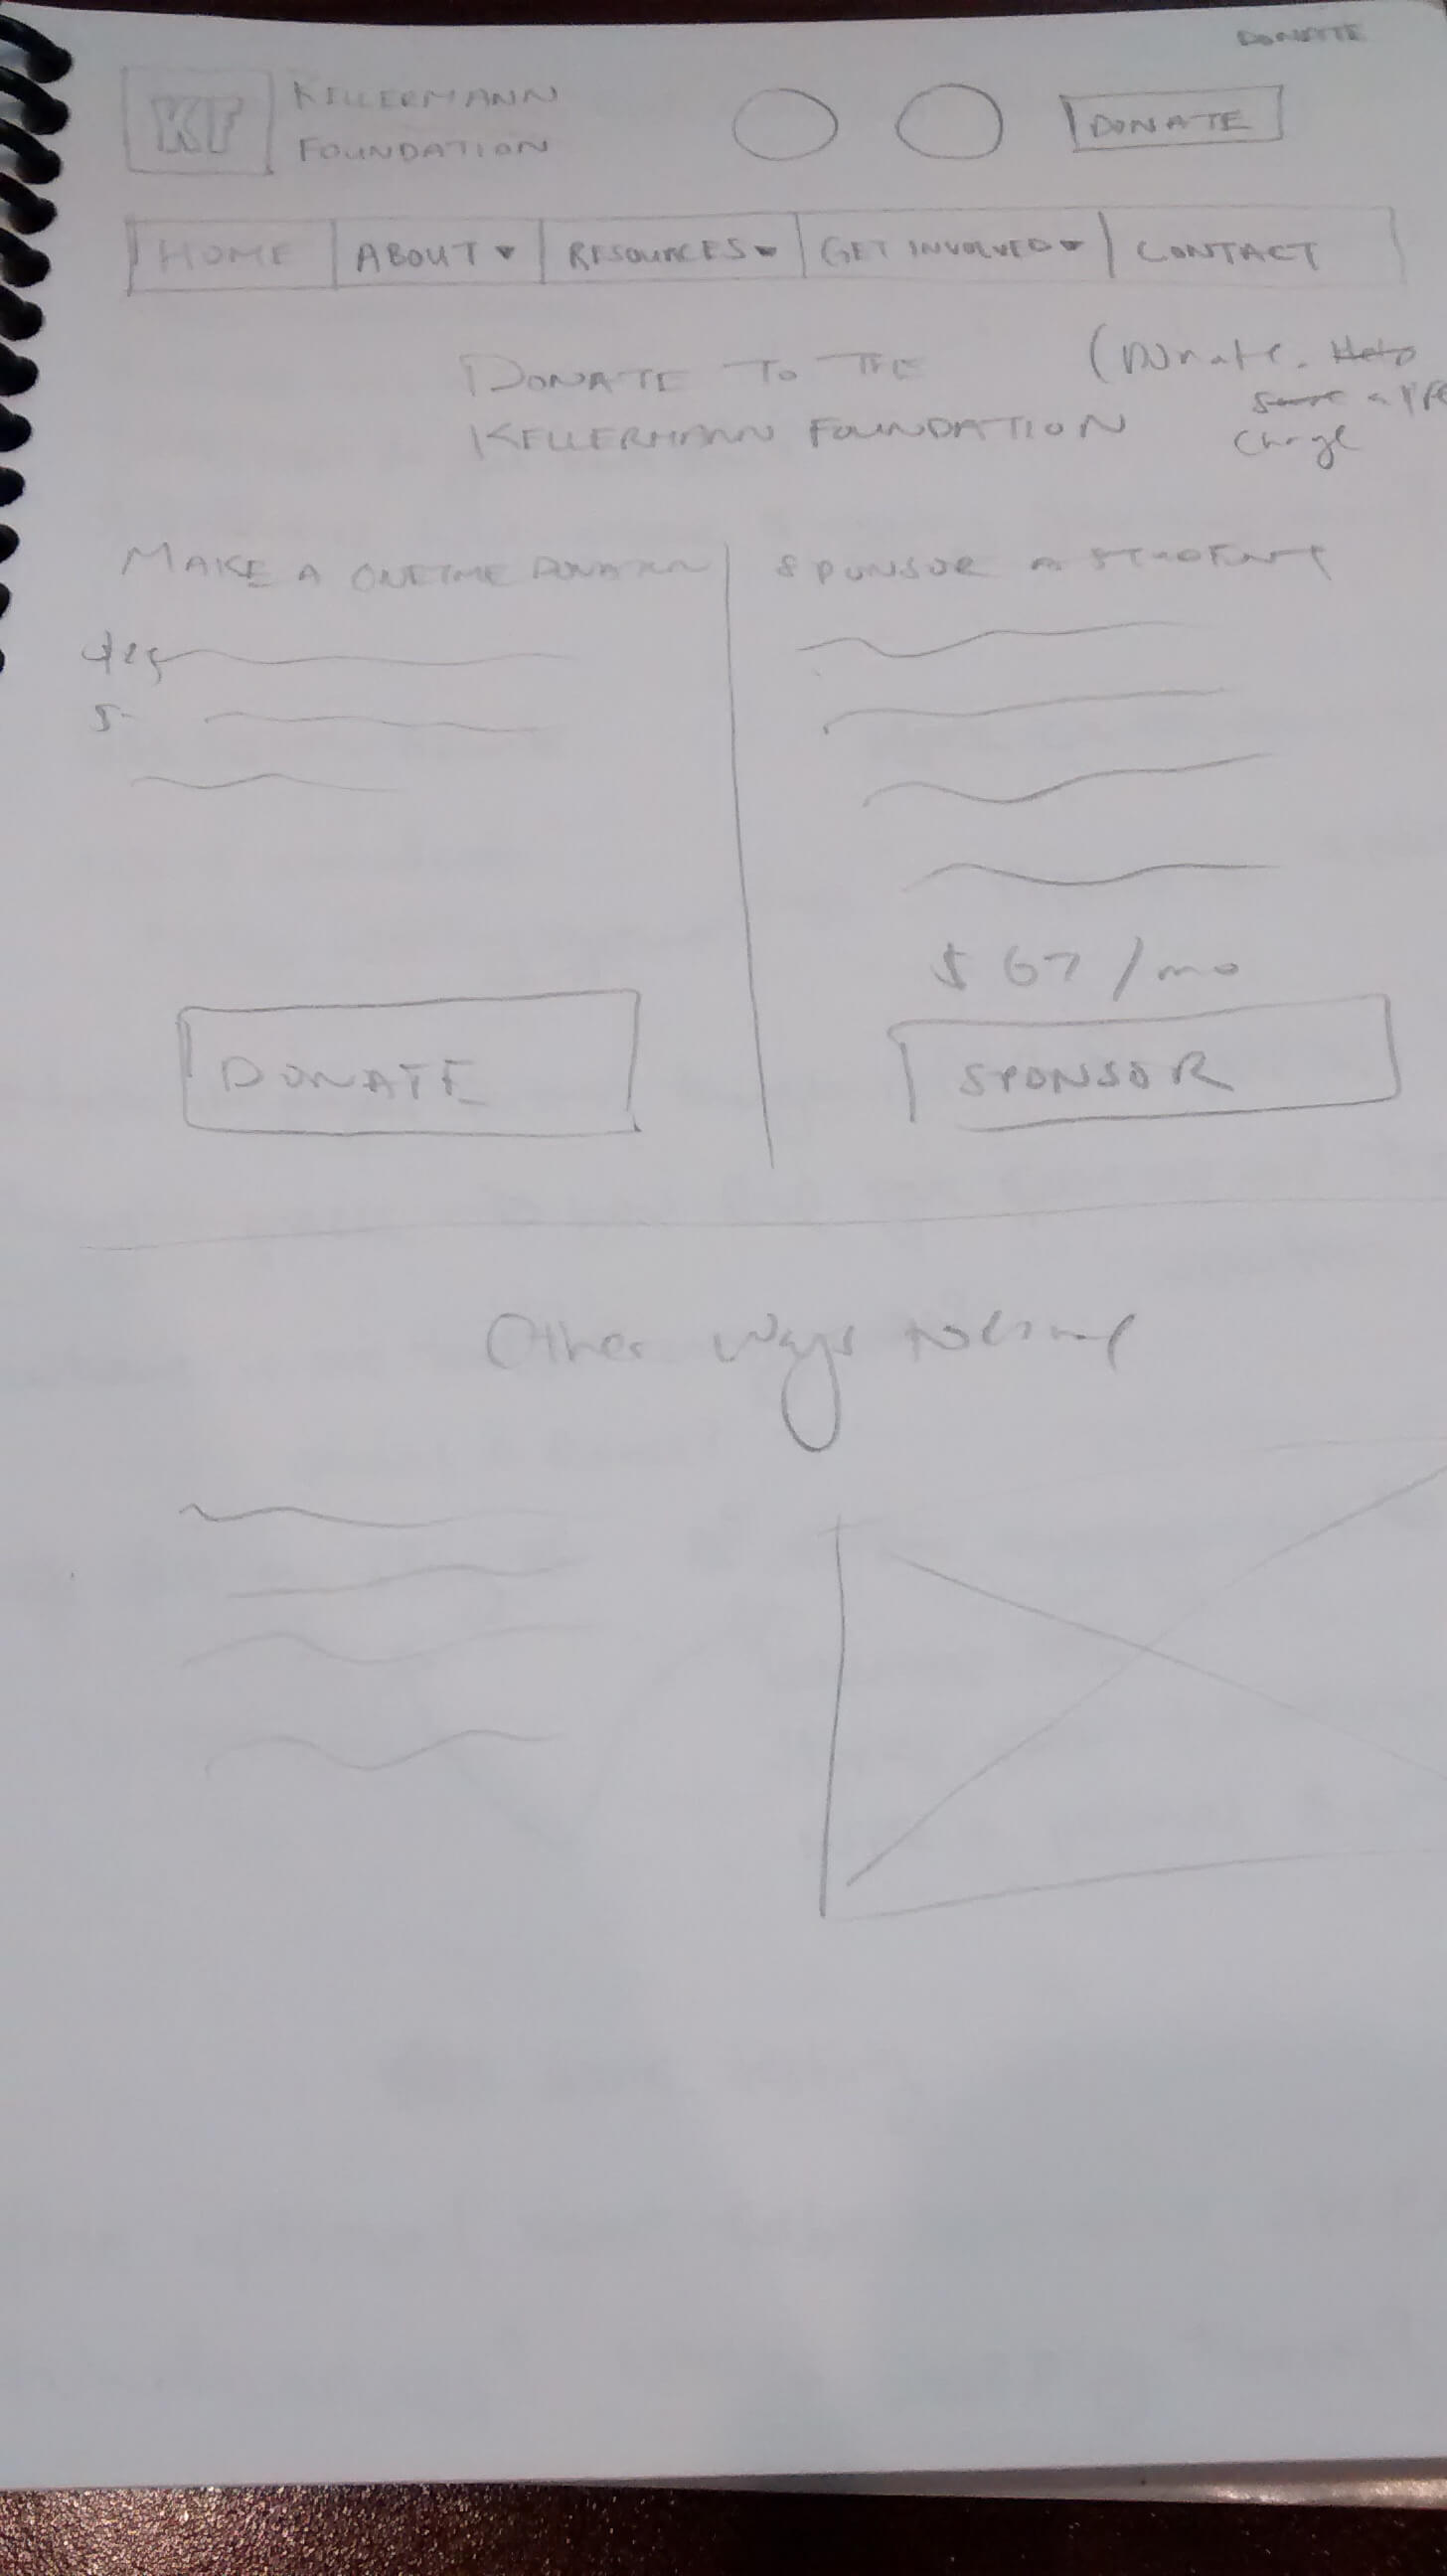 DONATE
KF
KELLERMANN
FOUNDATION
DONATE
HOME
ABOUT
RESOURCES
GET INVOLVED
CONTACT
DONATE TO THE
KELLERMANN FOUNDATION
(Donate. Help
Save a life
Change
MAKE A ONETIME DONATION
SPONSOR A STUDENT
$ 67 / mo
DONATE
SPONSOR
Other ways to